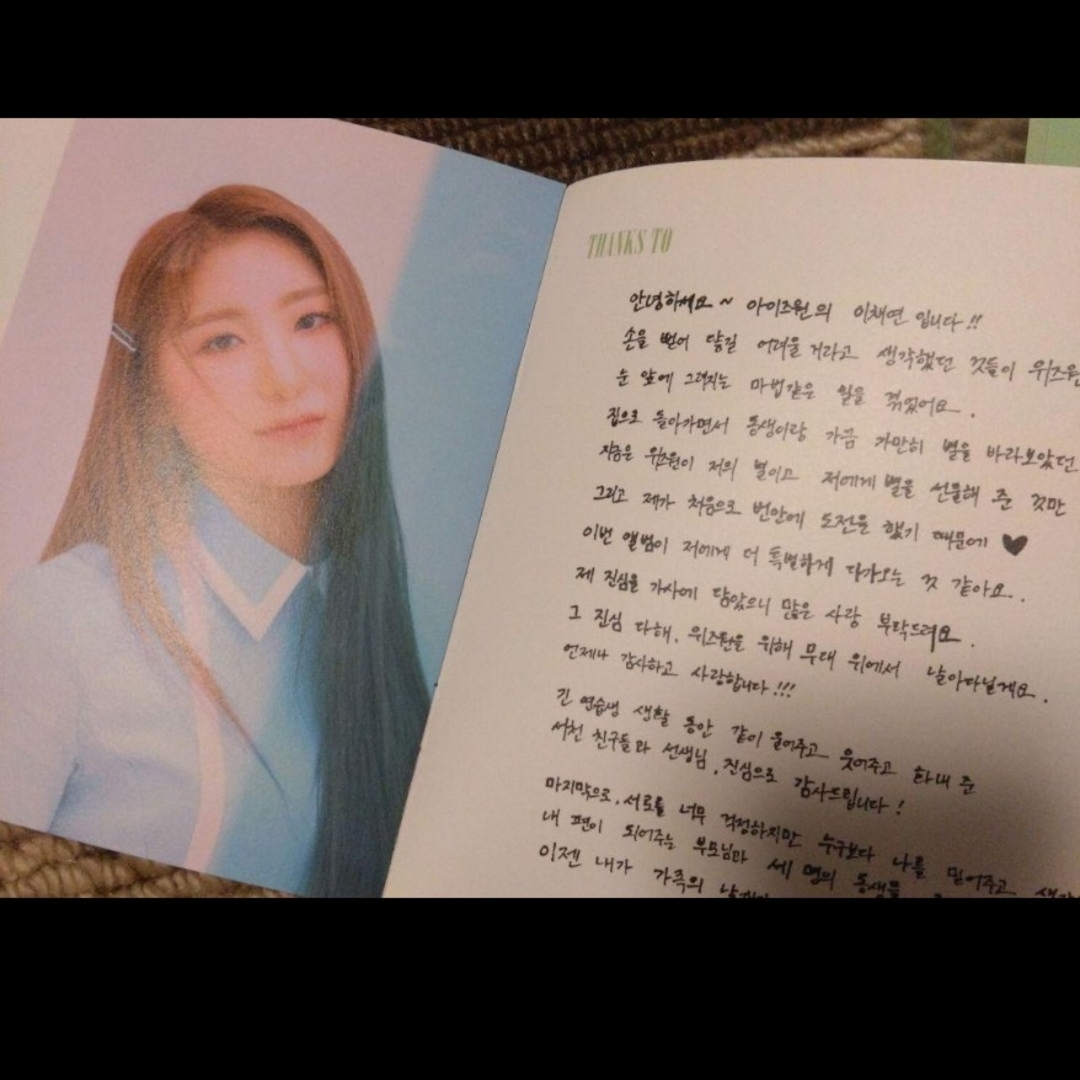 THANKS TO
안녕하세요~ 아이즈원의 이채연입니다!!
손을 뻗어 닿길 어려울 거라고 생각했던 것들이 위즈원
눈 앞에 그려지는 마법같은 일을 겪었어요.
집으로 돌아가면서 동생이랑 가끔 가만히 별을 바라보았던
지금은 위즈원이 저의 별이고 저에게 별을 선물해 준 것만
그리고 제가 처음으로 번안에 도전을 했기 때문에 ♥
이번 앨범이 저에게 더 특별하게 다가오는 것 같아요.
제 진심을 가사에 담았으니 많은 사랑 부탁드려요.
그 진심 다해, 위즈원을 위해 무대 위에서 날아다닐게요.
언제나 감사하고 사랑합니다!!!
긴 연습생 생활 동안 같이 울어주고 웃어주고 화내 준
서천 친구들과 선생님, 진심으로 감사드립니다!
마지막으로, 서로를 너무 걱정하지만 누구보다 나를 믿어주고
내 편이 되어주는 부모님과 세 명의 동생들
이젠 내가 가족의